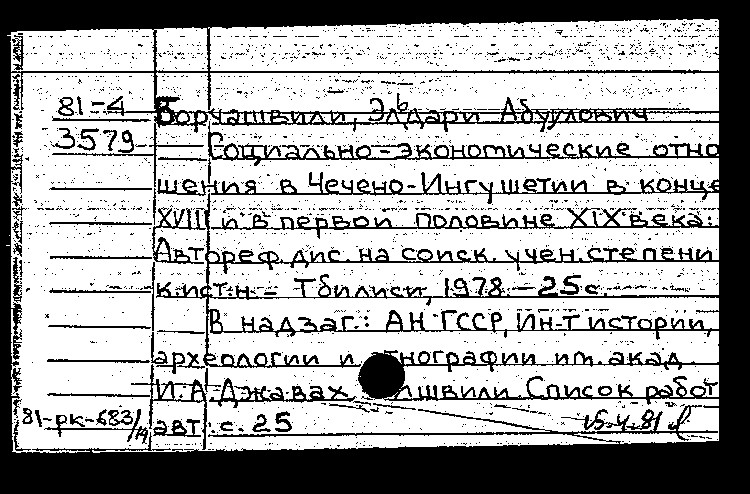 81-4 Борчашвили, Эльдари Абуулович
3579 Социально-экономические отно
шения в Чечено-Ингушетии в конце
XVIII и в первой половине XIX века:
Автореф дис. на соиск. учен. степени
к.ист.н - Тбилиси, 1978. - 25 с.
В надзаг.: АН ГССР, Ин-т истории,
археологии и этнографии им. акад.
И.А.Джавах швили Список работ
81-рк-683/14 авт: с. 25 15.4.81